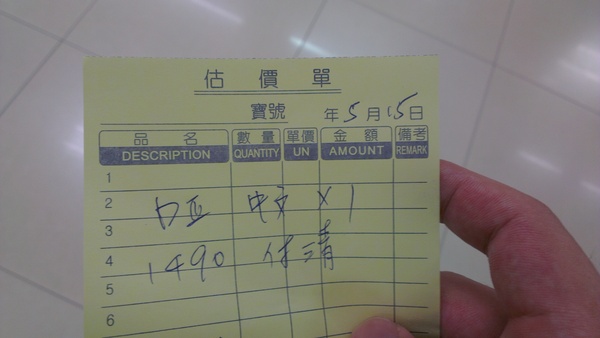 估價單
寶號 年5月15日
品名 數量 單價 金額 備考
DESCRIPTION QUANTITY UN AMOUNT REMARK
1
2
中文 X1
3
4
1490 付清
5
6